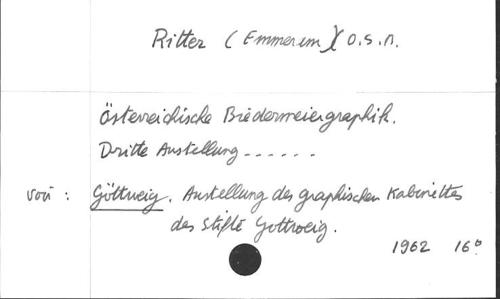 Ritter (Emmeram)( O.S.B.
österreichische Biedermeiergraphik.
Dritte Austellung......
voir : Göttweig. Austellung des graphischen Kabinettes
des Stifts Gottweig.
1962 16°